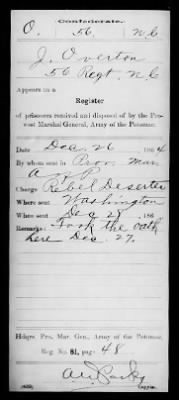 Confederate.
O. 56 N.C.
J. Overton
56 Regt. N.C.
Appears in a
Register
of prisoners received and disposed of by the Pro-
vost Marshal General, Army of the Potomac.
Date Dec. 26 1864
By whom sent in Prov. Mar.
A of P
Charge Rebel Deserter
Where sent Washington
When sent Dec 28 186
Remarks: Took the oath
here Dec. 27.
Hdqrs. Pro. Mar. Gen., Army of the Potomac.
Reg. No. 81, page 48
Copyist.